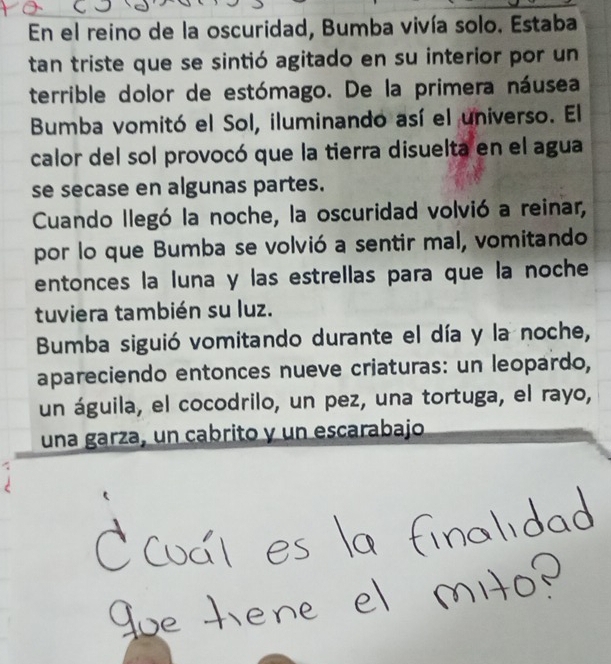 En el reino de la oscuridad, Bumba vivía solo. Estaba
tan triste que se sintió agitado en su interior por un
terrible dolor de estómago. De la primera náusea
Bumba vomitó el Sol, iluminando así el universo. El
calor del sol provocó que la tierra disuelta en el agua
se secase en algunas partes.
Cuando llegó la noche, la oscuridad volvió a reinar,
por lo que Bumba se volvió a sentir mal, vomitando
entonces la luna y las estrellas para que la noche
tuviera también su luz.
Bumba siguió vomitando durante el día y la noche,
apareciendo entonces nueve criaturas: un leopardo,
un águila, el cocodrilo, un pez, una tortuga, el rayo,
una garza, un cabrito y un escarabajo
¿Cuál es la finalidad
que tiene el mito?